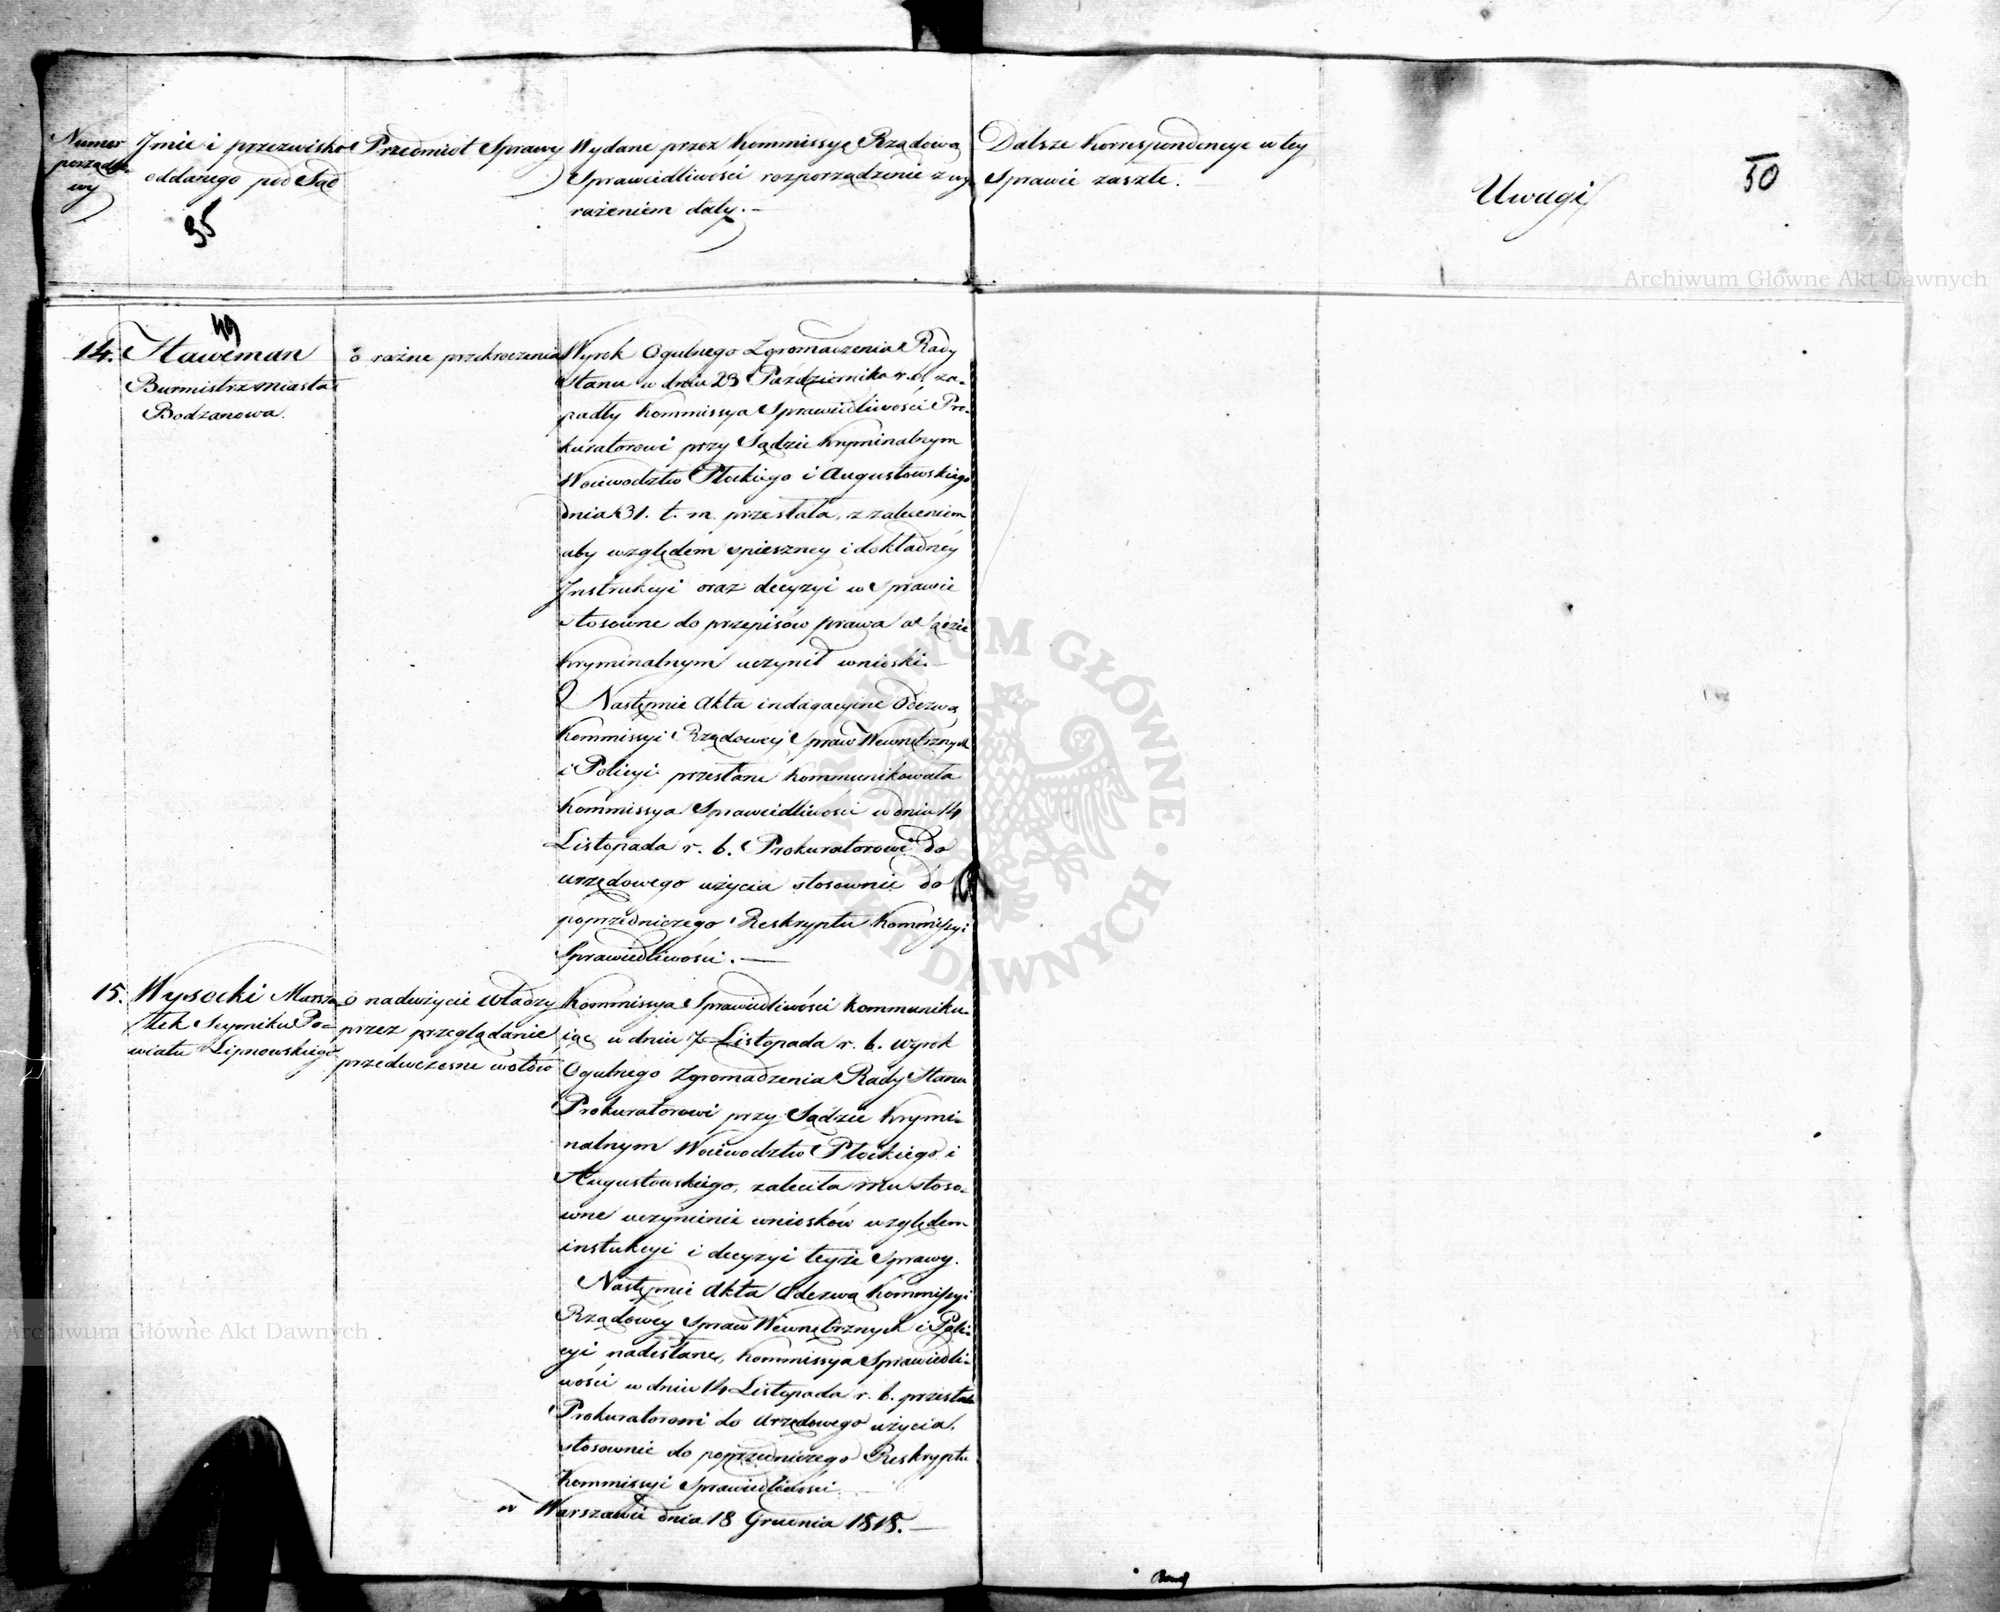 Numer
porządko-
wy
Jmie i przezwisko
oddanego pod Sąd
35
Przedmiot Sprawy
Wydane przez Kommissyę Rządową
Sprawiedliwości rozporządzenie z wy
rażeniem daty.—
Dalsze Korrespondencye w tey
Sprawie zaszłe.
Uwagi
50
Archiwum Główne Akt Dawnych
49
14. Haweman
Burmistrz miasta
Bodzanowa.
o rożne przekroczenia
Wyrok Ogulnego Zgromadzenia Rady
Stanu w dniu 23 Października r. b. za-
padły Kommissya Sprawiedliwości Pro-
kuratorowi przy Sądzie Kryminalnym
Woiewodztw Płockiego i Augustowskiego
dnia 31. t. m. przesłała, z zaleceniem
aby względem spieszney i dokładney
Jnstrukcyi oraz decyzyi w Sprawie
stosowne do przepisów prawa w Sądzie
Kryminalnym uczynił wnioski.—
Następnie Akta indagacyine Odezwą
Kommissyi Rządowey Spraw Wewnętrznych
i Policyi przesłane kommunikowała
Kommissya Sprawiedliwości w dniu 14
Listopada r. b. Prokuratorowi do
urzędowego użycia stosownie do
poprzedniczego Reskryptu Kommissyi
Sprawiedliwości.—
15. Wysocki Marsza
łek Seymiku Po-
wiatu Lipnowskiego
o nadużycie władzy
przez przeglądanie
przedwczesne wotów
Kommissya Sprawiedliwości kommuniku-
iąc w dniu 7 Listopada r. b. wyrok
Ogulnego Zgromadzenia Rady Stanu
Prokuratorowi przy Sądzie Krymi-
nalnym Woiewodztw Płockiego i
Augustowskiego, zaleciła mu stoso-
wne uczynienie wniosków względem
instukcyi i decyzyi teyże Sprawy.
Następnie Akta Odezwą Kommissyi
Rządowey Spraw Wewnętrznych i Poli-
cyi nadesłane, Kommissya Sprawiedli-
wości w dniu 14 Listopada r. b. przesłała
Prokuratorowi do urzędowego użycia,
stosownie do poprzedniczego Reskryptu
Kommissyi Sprawiedliwości
w Warszawie dnia 18 Grudnia 1818.—
ARCHIWUM GŁÓWNE · AKT DAWNYCH ·
Archiwum Główne Akt Dawnych